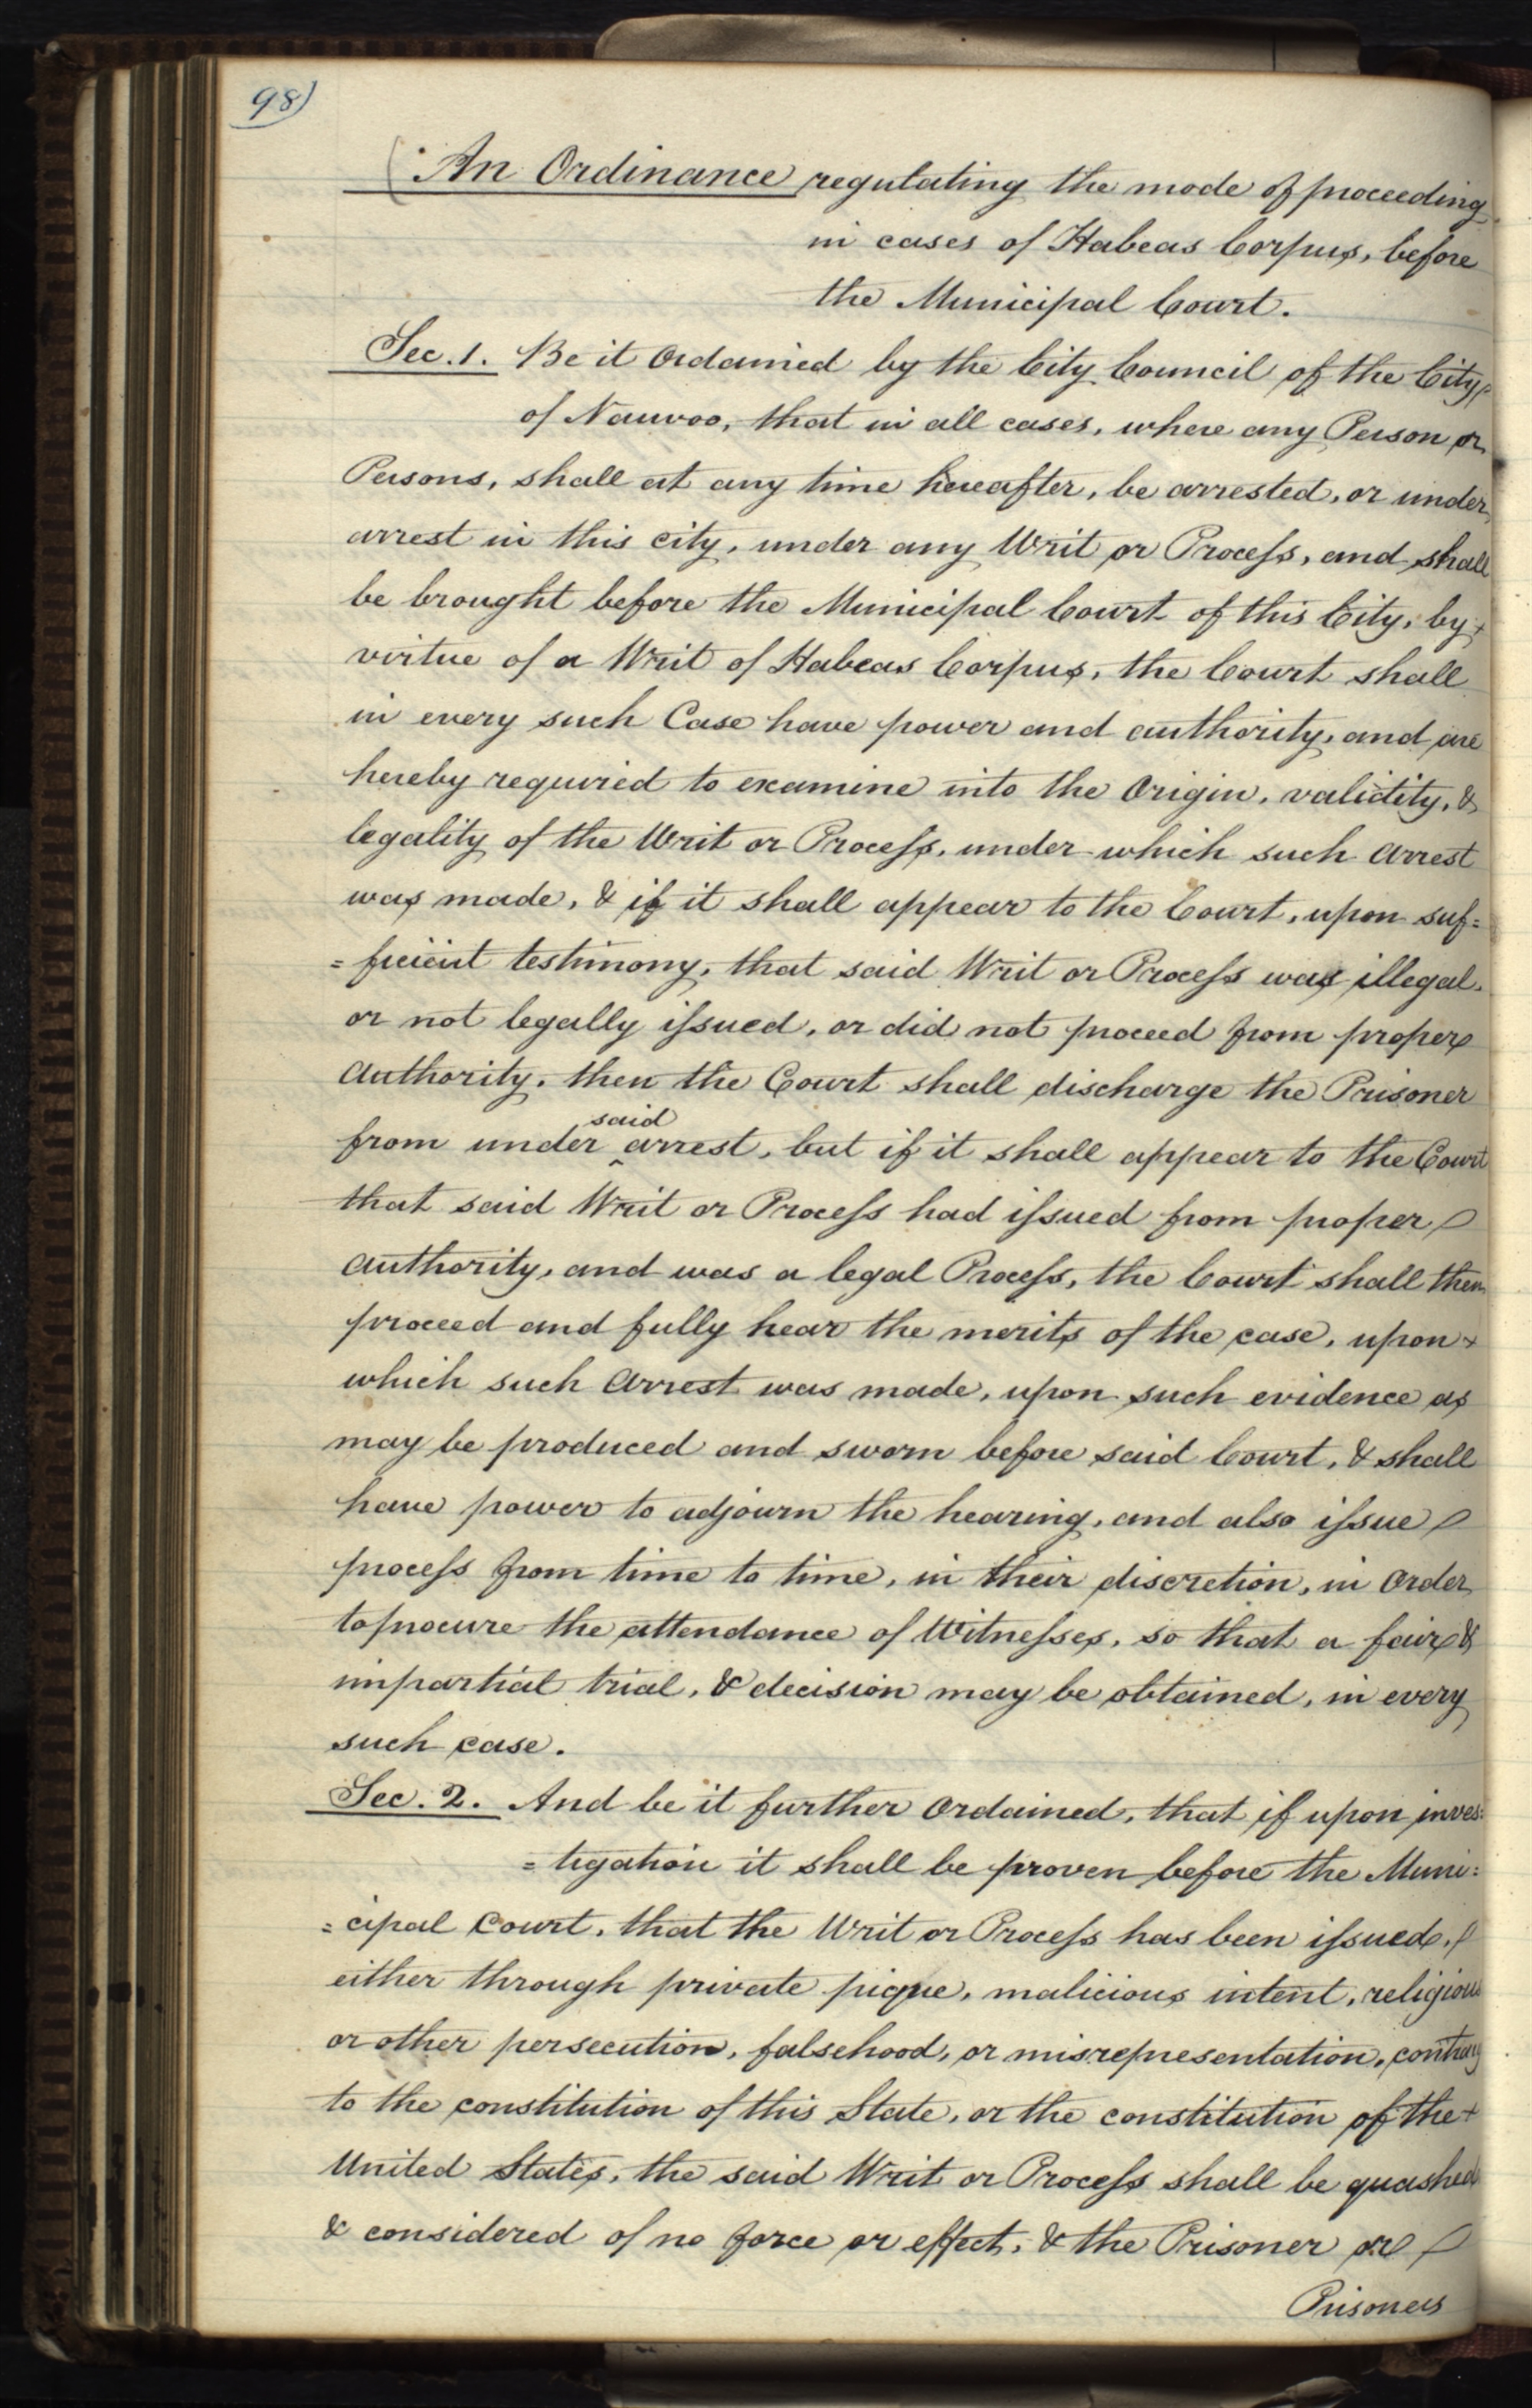 98)
An Ordinance regulating the mode of proceeding
in cases of Habeas Corpus, before
the Municipal Court.
Sec. 1. Be it Ordained by the City Council of the City
of Nauvoo, that in all cases, where any Person or
Persons, shall at any time hereafter, be arrested, or under
arrest in this city, under any Writ or Process, and shall
be brought before the Municipal Court of this City, by
virtue of a Writ of Habeas Corpus, the Court shall
in every such Case have power and authority, and are
hereby required to examine into the Origin, validity, &
legality of the Writ or Process, under which such Arrest
was made, & if it shall appear to the Court, upon suf=
=ficient testimony, that said Writ or Process was illegal,
or not legally issued, or did not proceed from proper
Authority, then the Court shall discharge the Prisoner
from under said arrest, but if it shall appear to the Court
that said Writ or Process had issued from proper
Authority, and was a legal Process, the Court shall then
proceed and fully hear the merits of the case, upon
which such Arrest was made, upon such evidence as
may be produced and sworn before said Court, & shall
have power to adjourn the hearing, and also issue
process from time to time, in their discretion, in Order
to procure the attendance of Witnesses, so that a fair &
impartial trial, & decision may be obtained, in every
such case.
Sec. 2. And be it further Ordained, that if upon inves=
=tigation it shall be proven before the Muni=
=cipal Court, that the Writ or Process has been issued,
either through private pique, malicious intent, religious
or other persecution, falsehood, or misrepresentation, contrary
to the constitution of this State, or the constitution of the
United States, the said Writ or Process shall be quashed
& considered of no force or effect, & the Prisoner or
Prisoners